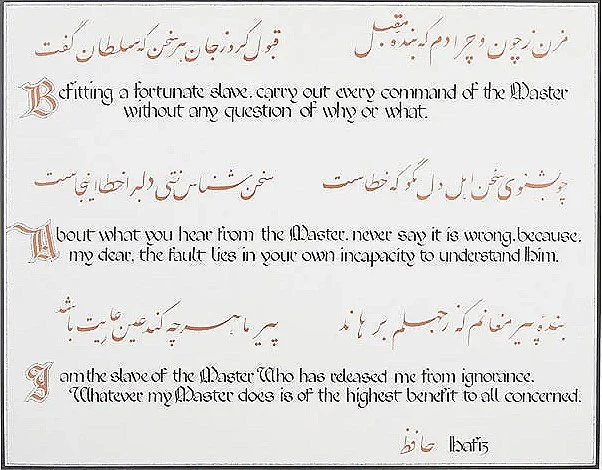 مزن ز چون و چرا دم که بندهٔ مقبل قبول کرد ز جان هر سخن که سلطان گفت
Befitting a fortunate slave, carry out every command of the Master
without any question of why or what.
چو بشنوی سخن اهل دل مگو که خطاست سخن شناس نئی دلبرا خطا اینجاست
About what you hear from the Master, never say it is wrong, because,
my dear, the fault lies in your own incapacity to understand Him.
بندهٔ پیر مغانم که ز جهلم برهاند پیر ما هر چه کند عین عنایت باشد
I am the slave of the Master Who has released me from ignorance.
Whatever my Master does is of the highest benefit to all concerned.
حافظ Hafiz